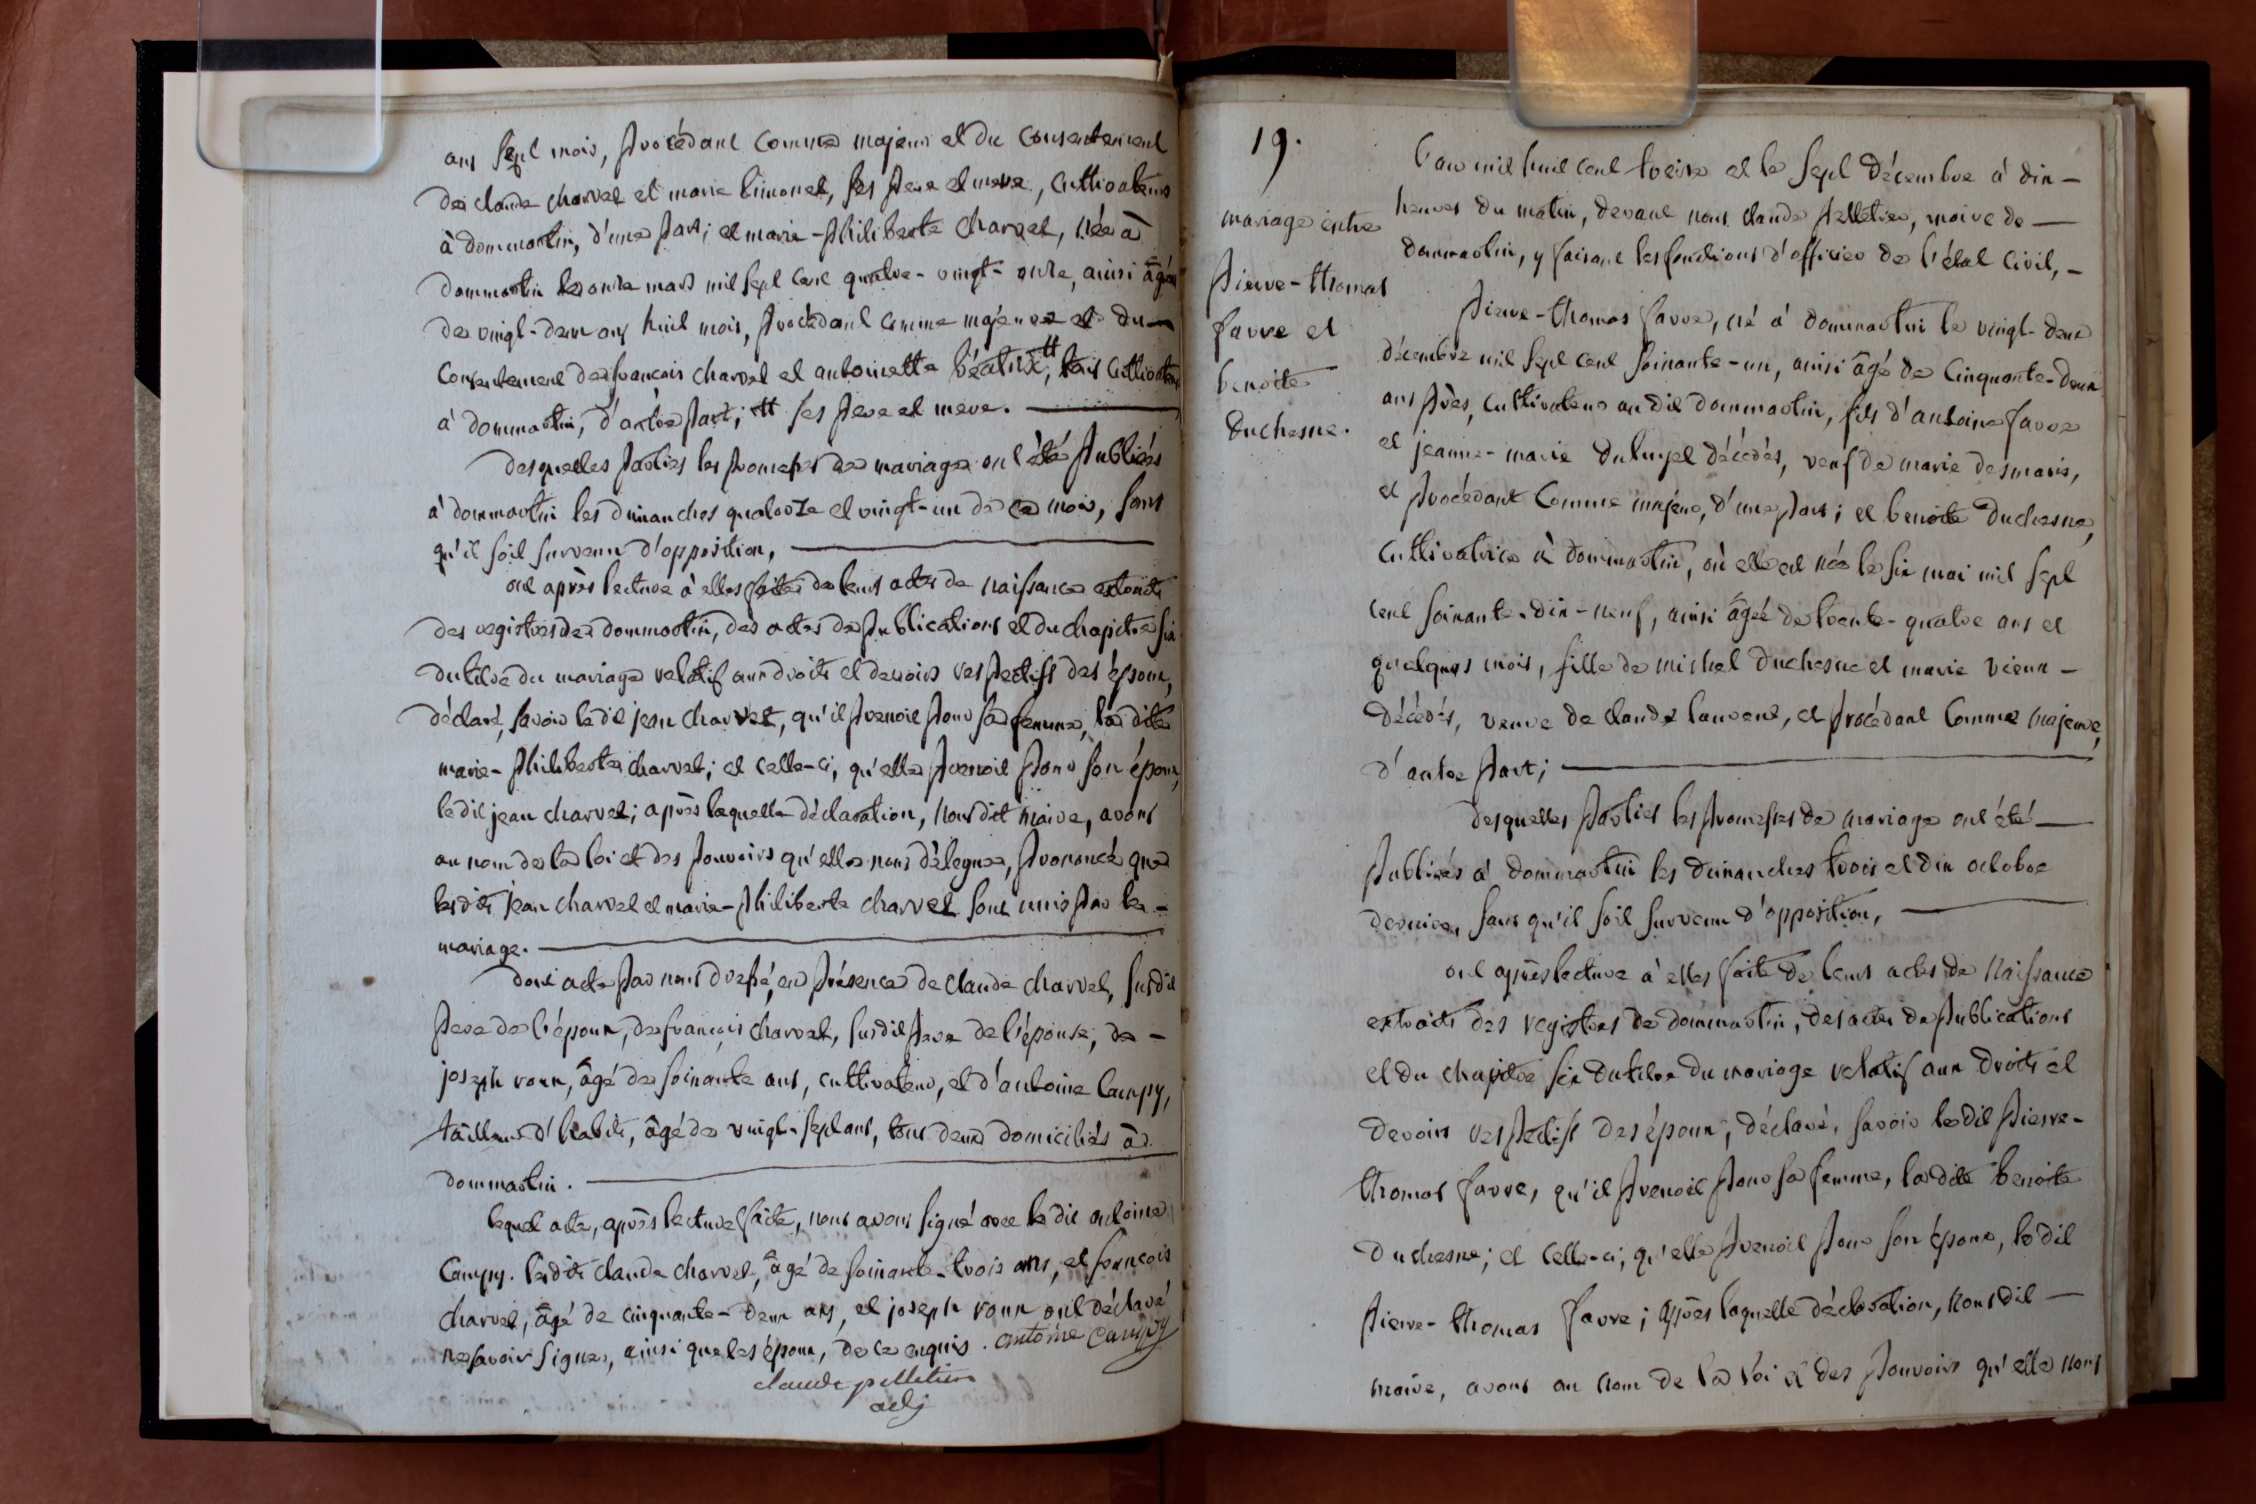 ans sept mois, procédant comme majeur et du consentement
de claude charvet et marie limonet, ses pere et mere, cultivateurs
à dommartin, d'une part; et marie-philiberte charvet, née à
dommartin le onze mars mil sept cent quatre-vingt-onze, ainsi âgée
de vingt-deux ans huit mois, procédant comme majeure et du
consentement de françois charvet et antoinette béatrix, # tous cultivateurs
à dommartin, d'autre part; # ses pere et mere.
desquelles parties les promesses de mariage ont été publiées
à dommartin les dimanches quatorze et vingt-un de ce mois, sans
qu'il soit survenu d'opposition,
ont après lecture à elles faite de leurs actes de naissance extraits
des registres de dommartin, des actes de publications et du chapitre six
du titre du mariage relatif aux droits et devoirs respectifs des époux,
déclaré, savoir le dit jean charvet, qu'il prenoit pour sa femme, la dite
marie-philiberte charvet; et celle-ci, qu'elle prenoit pour son époux,
le dit jean charvet; après laquelle déclaration, nous dit maire, avons
au nom de la loi et des pouvoirs qu'elle nous délegue, prononcé que
les dits jean charvet et marie-philiberte charvet sont unis par le
mariage.
dont acte par nous dressé, en présence de claude charvet, susdit
pere de l'époux, de françois charvet, susdit pere de l'épouse, de
joseph roux, âgé de soixante ans, cultivateur, et d'antoine campy,
tailleur d'habits, âgé de vingt-sept ans, tous deux domiciliés à
dommartin.
lequel acte, après lecture faite, nous avons signé avec le dit antoine
campy. les dits claude charvet, âgé de soixante-trois ans, et françois
charvet, âgé de cinquante-deux ans, et joseph roux ont déclaré
ne savoir signer, ainsi que les époux, de ce enquis. antoine campy
claude pelletier
adj
19.
mariage entre
pierre-thomas
favre et
benoite
duchesne.
L'an mil huit cent treize et le sept décembre à dix
heures du matin, devant nous claude pelletier, maire de
dommartin, y faisant les fonctions d'officier de l'état civil,
pierre-thomas favre, né à dommartin le vingt-deux
décembre mil sept cent soixante-un, ainsi âgé de cinquante-deux
ans près, cultivateur au dit dommartin, fils d'antoine favre
et jeanne-marie dulupel décédés, veuf de marie desmaris,
et procédant comme majeur, d'une part; et benoite duchesne,
cultivatrice à dommartin, où elle est née le six mai mil sept
cent soixante-dix-neuf, ainsi âgée de trente-quatre ans et
quelques mois, fille de michel duchesne et marie vieux
décédés, veuve de claude laurent, et procédant comme majeure,
d'autre part;
desquelles parties les promesses de mariage ont été
publiées à dommartin les dimanches trois et dix octobre
dernier, sans qu'il soit survenu d'opposition,
ont après lecture à elles faite de leurs actes de naissance
extraits des registres de dommartin, des actes de publications
et du chapitre six du titre du mariage relatif aux droits et
devoirs respectifs des époux, déclaré, savoir le dit pierre-
thomas favre, qu'il prenoit pour sa femme, la dite benoite
duchesne; et celle-ci, qu'elle prenoit pour son époux, le dit
pierre-thomas favre; après laquelle déclaration, nous dit
maire, avons au nom de la loi et des pouvoirs qu'elle nous